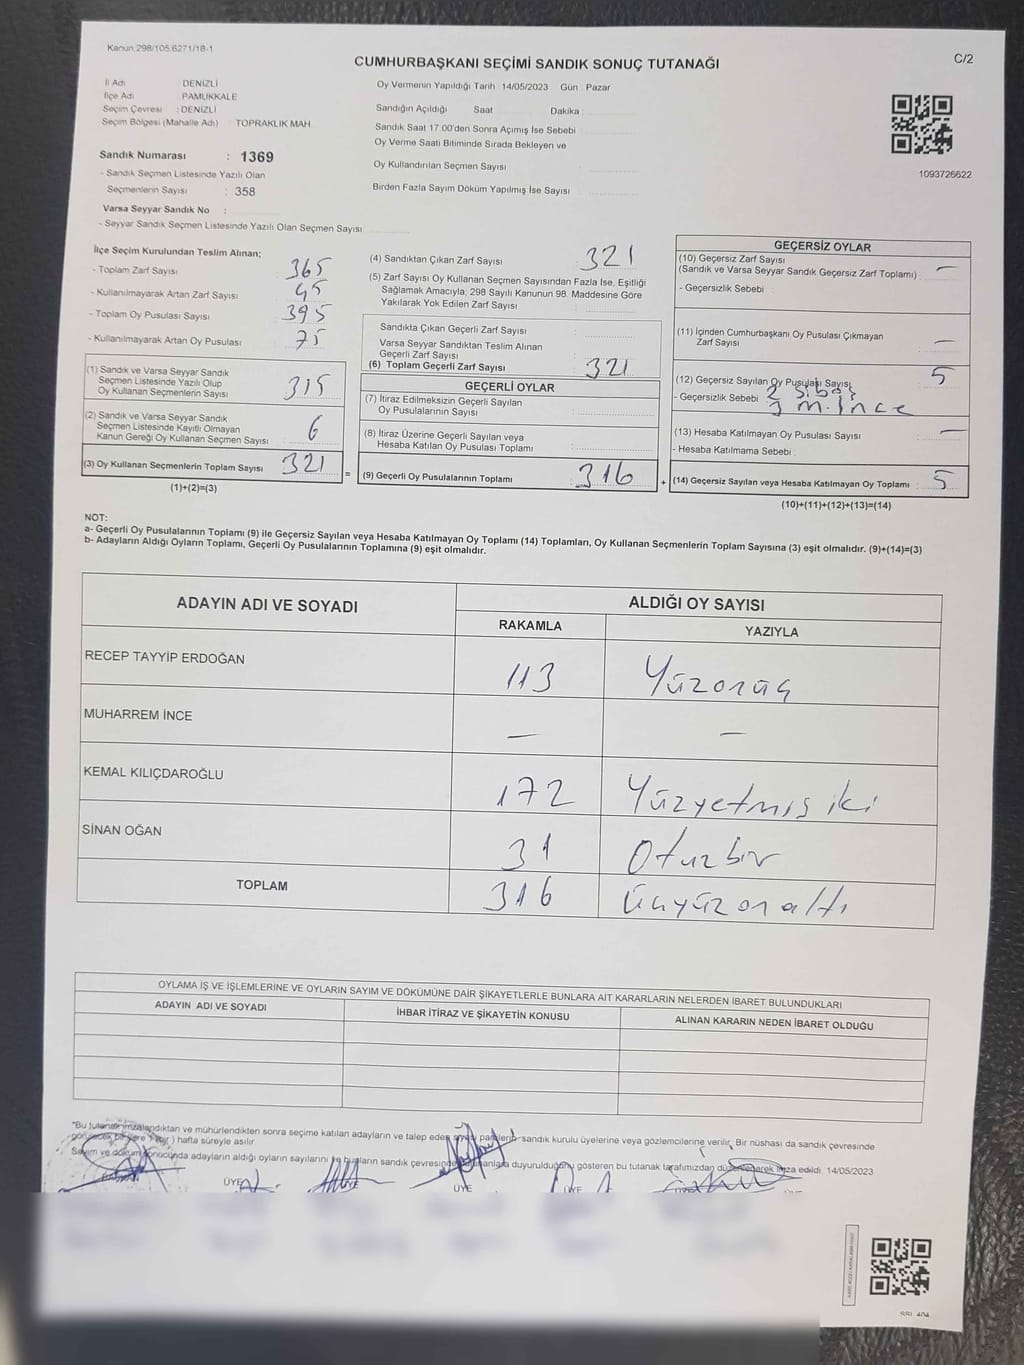 Kanun:298/105,6271/18-1
C/2
CUMHURBAŞKANI SEÇİMİ SANDIK SONUÇ TUTANAĞI
İl Adı : DENİZLİ
İlçe Adı : PAMUKKALE
Seçim Çevresi : DENİZLİ
Seçim Bölgesi (Mahalle Adı) : TOPRAKLIK MAH.
Sandık Numarası : 1369
- Sandık Seçmen Listesinde Yazılı Olan
Seçmenlerin Sayısı : 358
Varsa Seyyar Sandık No :
- Seyyar Sandık Seçmen Listesinde Yazılı Olan Seçmen Sayısı :
Oy Vermenin Yapıldığı Tarih : 14/05/2023 Gün : Pazar
Sandığın Açıldığı Saat Dakika
Sandık Saat 17:00'den Sonra Açımış İse Sebebi
Oy Verme Saati Bitiminde Sırada Bekleyen ve
Oy Kullandırılan Seçmen Sayısı
Birden Fazla Sayım Döküm Yapılmış İse Sayısı
1093726622
İlçe Seçim Kurulundan Teslim Alınan;
- Toplam Zarf Sayısı : 365
- Kullanılmayarak Artan Zarf Sayısı : 45
- Toplam Oy Pusulası Sayısı : 395
- Kullanılmayarak Artan Oy Pusulası : 75
(1) Sandık ve Varsa Seyyar Sandık
Seçmen Listesinde Yazılı Olup
Oy Kullanan Seçmenlerin Sayısı : 315
(2) Sandık ve Varsa Seyyar Sandık
Seçmen Listesinde Kayıtlı Olmayan
Kanun Gereği Oy Kullanan Seçmen Sayısı : 6
(3) Oy Kullanan Seçmenlerin Toplam Sayısı : 321
(1)+(2)=(3)
=
(4) Sandıktan Çıkan Zarf Sayısı : 321
(5) Zarf Sayısı Oy Kullanan Seçmen Sayısından Fazla İse, Eşitliği
Sağlamak Amacıyla, 298 Sayılı Kanunun 98. Maddesine Göre
Yakılarak Yok Edilen Zarf Sayısı :
Sandıkta Çıkan Geçerli Zarf Sayısı :
Varsa Seyyar Sandıktan Teslim Alınan
Geçerli Zarf Sayısı :
(6) Toplam Geçerli Zarf Sayısı : 321
GEÇERLİ OYLAR
(7) İtiraz Edilmeksizin Geçerli Sayılan
Oy Pusulalarının Sayısı :
(8) İtiraz Üzerine Geçerli Sayılan veya
Hesaba Katılan Oy Pusulası Toplamı :
(9) Geçerli Oy Pusulalarının Toplamı : 316
+
GEÇERSİZ OYLAR
(10) Geçersiz Zarf Sayısı
(Sandık ve Varsa Seyyar Sandık Geçersiz Zarf Toplamı) : —
- Geçersizlik Sebebi :
(11) İçinden Cumhurbaşkanı Oy Pusulası Çıkmayan
Zarf Sayısı : —
(12) Geçersiz Sayılan Oy Pusulası Sayısı : 5
- Geçersizlik Sebebi : 2
3 m. ince
(13) Hesaba Katılmayan Oy Pusulası Sayısı : —
- Hesaba Katılmama Sebebi :
(14) Geçersiz Sayılan veya Hesaba Katılmayan Oy Toplamı : 5
(10)+(11)+(12)+(13)=(14)
NOT:
a- Geçerli Oy Pusulalarının Toplamı (9) ile Geçersiz Sayılan veya Hesaba Katılmayan Oy Toplamı (14) Toplamları, Oy Kullanan Seçmenlerin Toplam Sayısına (3) eşit olmalıdır. (9)+(14)=(3)
b- Adayların Aldığı Oyların Toplamı, Geçerli Oy Pusulalarının Toplamına (9) eşit olmalıdır.
ADAYIN ADI VE SOYADI
ALDIĞI OY SAYISI
RAKAMLA YAZIYLA
RECEP TAYYİP ERDOĞAN 113 Yüzonüç
MUHARREM İNCE — —
KEMAL KILIÇDAROĞLU 172 Yüzyetmiş iki
SİNAN OĞAN 31 Otuzbir
TOPLAM 316 üçyüz on altı
OYLAMA İŞ VE İŞLEMLERİNE VE OYLARIN SAYIM VE DÖKÜMÜNE DAİR ŞİKAYETLERLE BUNLARA AİT KARARLARIN NELERDEN İBARET BULUNDUKLARI
ADAYIN ADI VE SOYADI İHBAR İTİRAZ VE ŞİKAYETİN KONUSU ALINAN KARARIN NEDEN İBARET OLDUĞU
*Bu tutanak imzalandıktan ve mühürlendikten sonra seçime katılan adayların ve talep eden siyasi partilerin sandık kurulu üyelerine veya gözlemcilerine verilir. Bir nüshası da sandık çevresinde
görülecek bir yere 1 (bir) hafta süreyle asılır.
Sayım ve döküm sonucunda adayların aldığı oyların sayılarını ve bunların sandık çevresinde duyurulduğunu gösteren bu tutanak tarafımızdan düzenlenerek imza edildi. 14/05/2023
ÜYE ÜYE ÜYE